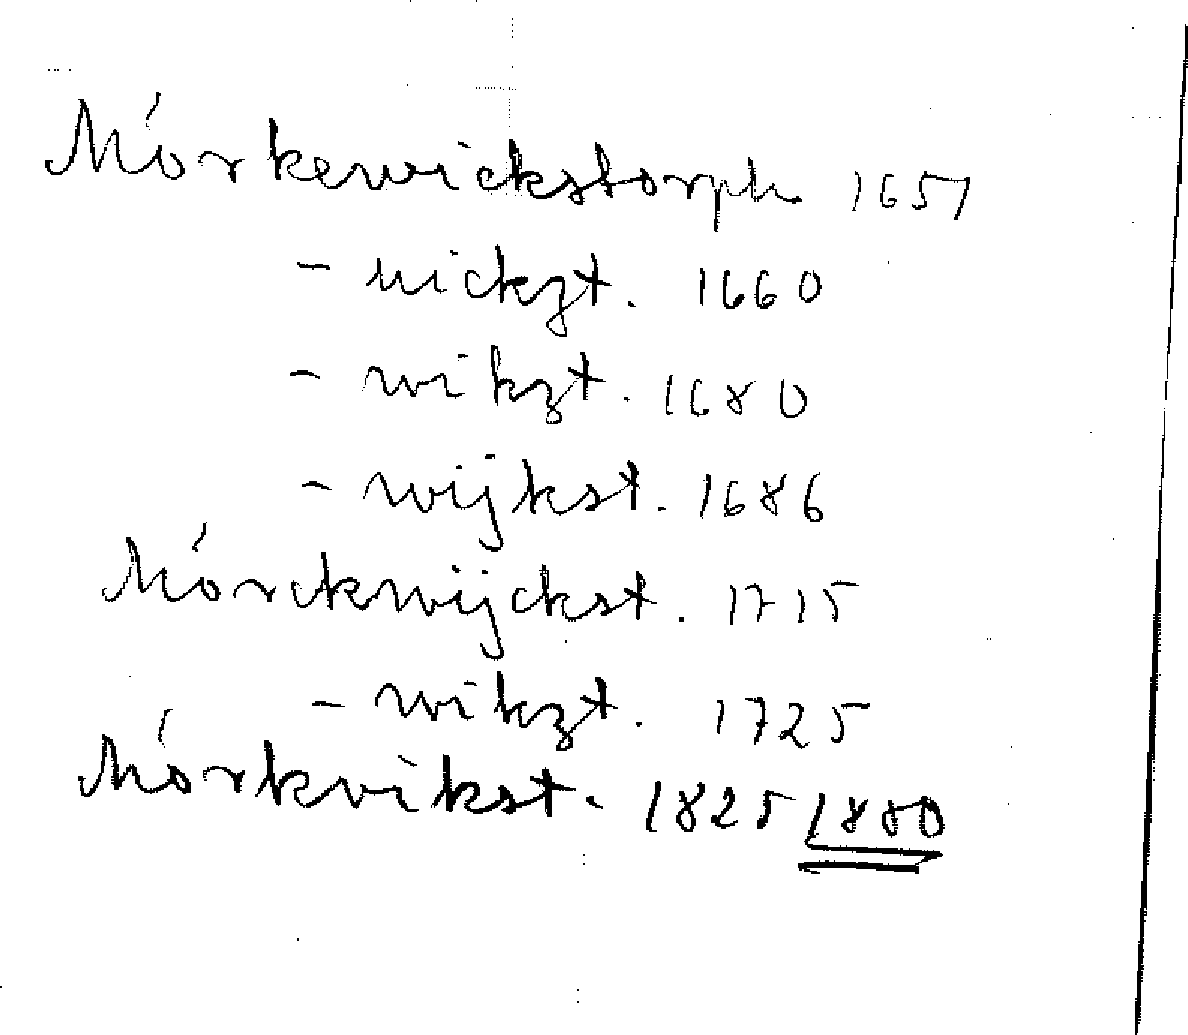 Mörkewickstorph 1651
- wickzt. 1660
- wikzt. 1680
- wijkst. 1686
Mörckwijckst. 1715
- wikzt. 1725
Mörkvikst. 1825 1880